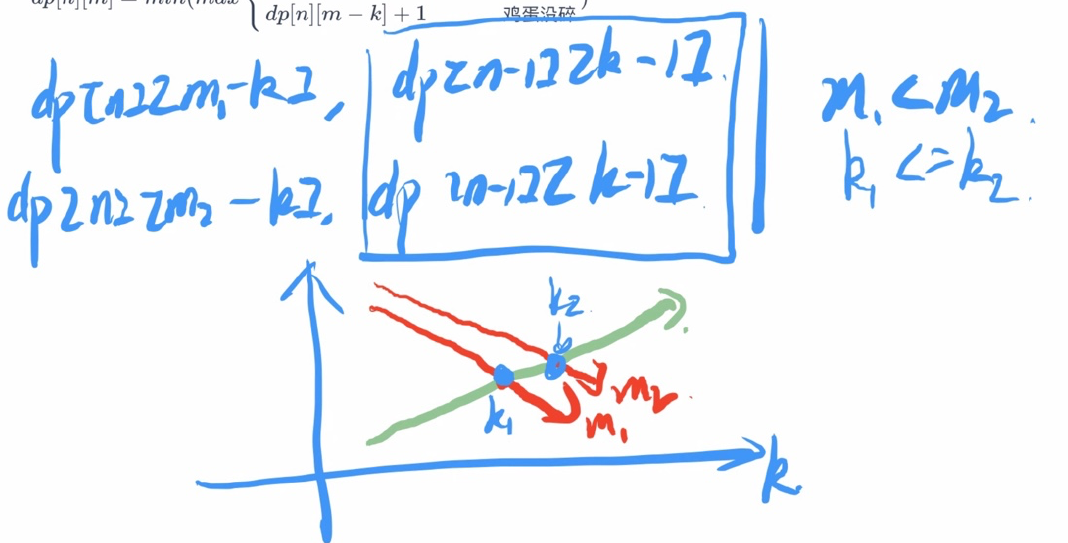 dp[n][m] = min(max {
dp[n][m − k] + 1 鸡蛋没碎 )
dp[n][m₁-k], dp[n-1][k-1] m₁<m₂
dp[n][m₂-k], dp[n-1][k-1] k₁<=k₂
k₂
m₂
k₁ m₁
k